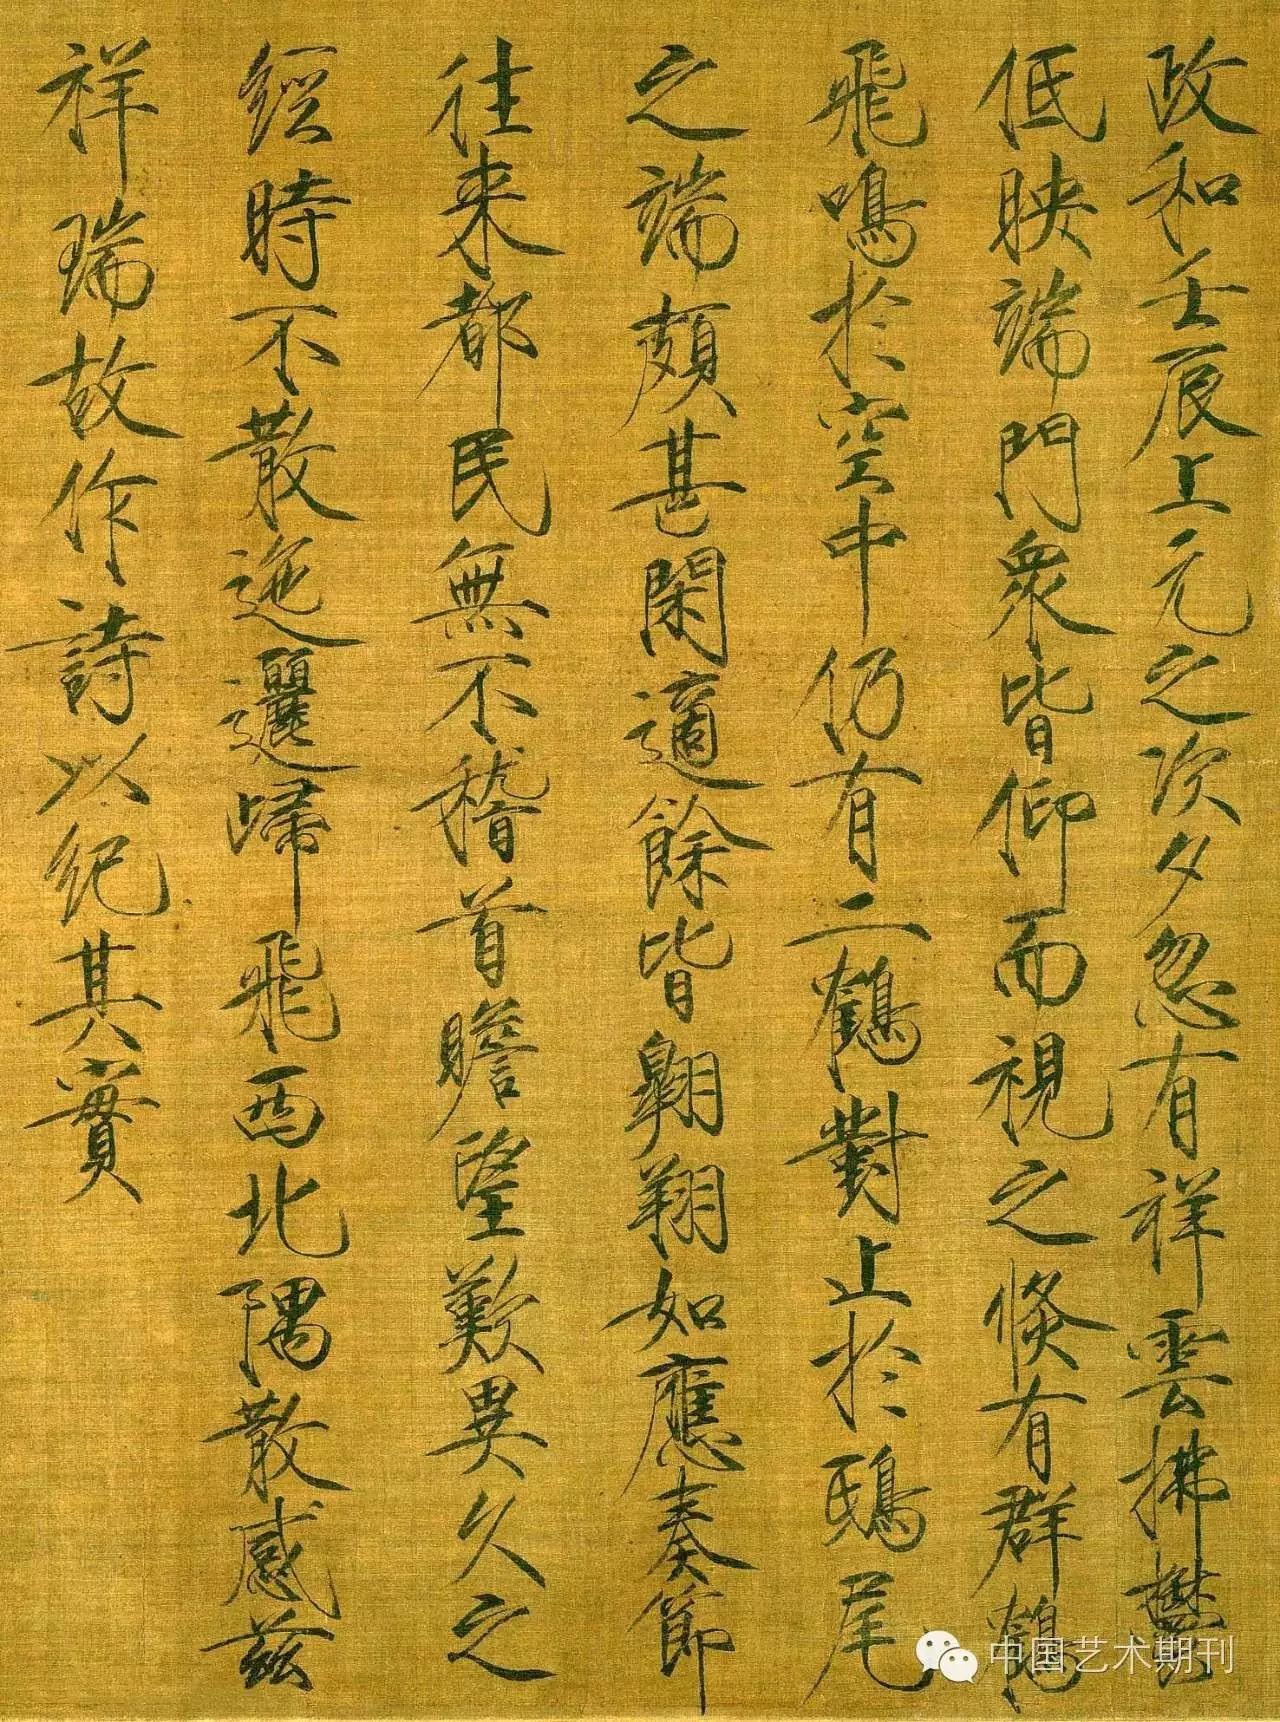 政和壬辰上元之次夕忽有祥雲拂鬱
低映端門衆皆仰而視之倐有群鶴
飛鳴於空中仍有二鶴對止於鴟尾
之端頗甚閑適餘皆翱翔如應奏節
往来都民無不稽首瞻望歎異久之
經時不散迤邐歸飛西北隅散感兹
祥瑞故作詩以紀其實
中国艺术期刊